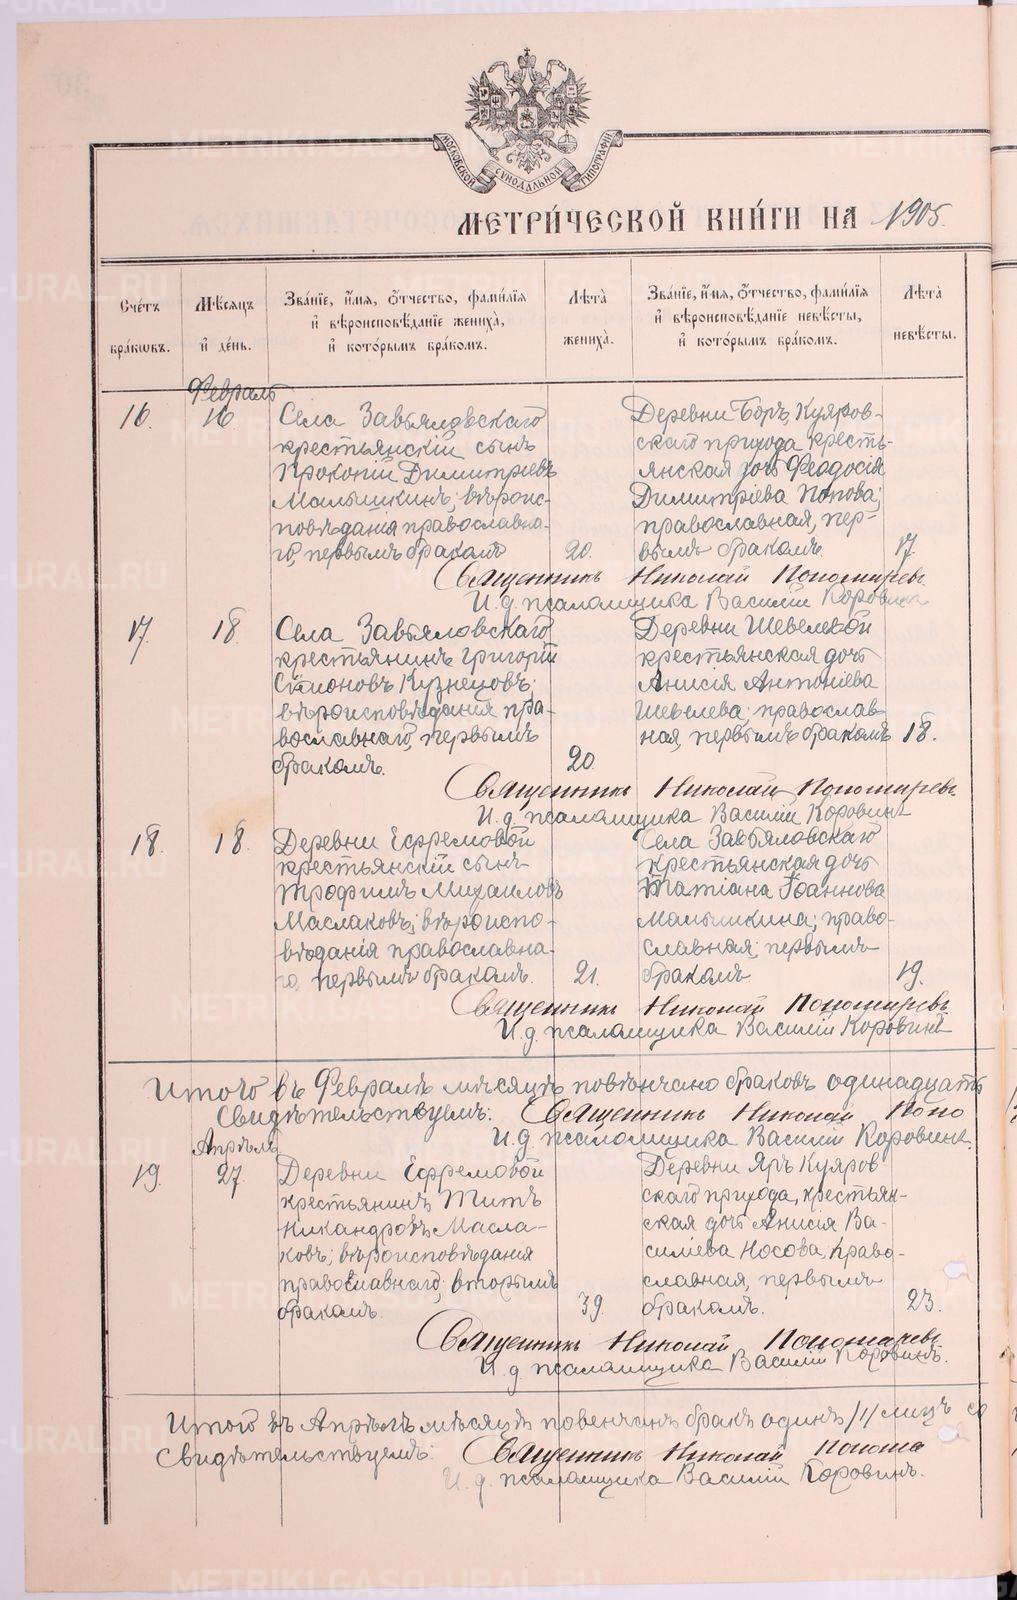 МОСКОВСКОЙ СУНОДАЛЬНОЙ ТИПОГРАФІИ
МЕТРИ́ЧЕСКОЙ КНИ́ГИ НА 1905.
Сче́тъ бра́кѡвъ.
Мѣ́сяцъ и҆ де́нь.
Зва́нїе, и҆́мя, ѻ҆́тчество, фами́лїя и҆ вѣроисповѣ́данїе жениха̀, и҆ кото́рымъ бра́комъ.
Лѣ́та жениха̀.
Зва́нїе, и҆́мя, ѻ҆́тчество, фами́лїя и҆ вѣроисповѣ́данїе невѣ́сты, и҆ кото́рымъ бра́комъ.
Лѣ́та невѣ́сты.
Февраль
16. 16.
Села Завьяловскаго
крестьянскій сынъ
Прокопій Димитріевъ
Малышкинъ; вѣроис-
повѣданія православна-
го, первымъ бракомъ
20.
Деревни Боръ, Куяров-
скаго прихода кресть-
янская дочь Феодосія
Димитріева Попова;
православная, пер-
вымъ бракомъ.
17.
Священникъ Николай Пономаревъ
И. д. псаломщика Василій Коровинъ
17. 18.
Села Завьяловскаго
крестьянинъ Григорій
Симеоновъ Кузнецовъ;
вѣроисповѣданія пра-
вославнаго, первымъ
бракомъ.
20.
Деревни Шевелевой
крестьянская дочь
Анисія Антоніева
Шевелева; православ
ная, первымъ бракомъ
18.
Священникъ Николай Пономаревъ
И. д. псаломщика Василій Коровинъ
18. 18.
Деревни Ефремовой
крестьянскій сынъ
Трофимъ Михаиловъ
Маслаковъ; вѣроиспо-
вѣданія православна-
го, первымъ бракомъ.
21.
Села Завьяловскаго
крестьянская дочь
Татіана Іоаннова
Малышкина; право-
славная; первымъ
бракомъ
19.
Священникъ Николай Пономаревъ
И. д. псаломщика Василій Коровинъ
Итого въ Февралѣ мѣсяцѣ повѣнчано браковъ одинадцать
Свидѣтельствуемъ: Священникъ Николай Поно
И. д. псаломщика Василій Коровинъ.
Апрѣль
19. 27.
Деревни Ефремовой
крестьянинъ Титъ
Никандровъ Масла-
ковъ; вѣроисповѣдания
православнаго; вторымъ
бракомъ.
39.
Деревни Яръ Куяров
скаго прихода, крестьян-
ская дочь Анисія Ва-
силіева Носова, право-
славная, первымъ
бракомъ.
23.
Священникъ Николай Пономаревъ
И. д. псаломщика Василій Коровинъ.
Итого въ Апрѣлѣ мѣсяцѣ повенчанъ бракъ одинъ /1/ лицъ со
Свидѣтельствуемъ: Священникъ Николай Понома
И. д. псаломщика Василій Коровинъ.
METRIKI.GASO-URAL.RU